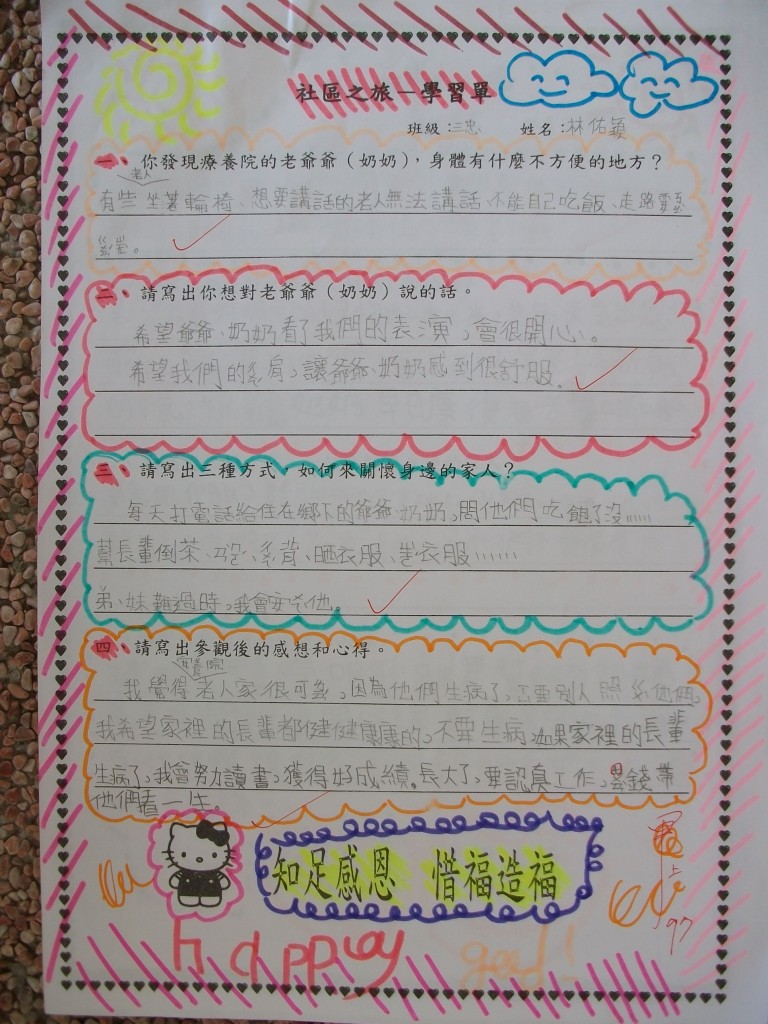 社區之旅－學習單
班級：三忠 姓名：林佑穎
一、你發現療養院的老爺爺（奶奶），身體有什麼不方便的地方？
老人
有些坐著輪椅、想要講話的老人無法講話、不能自己吃飯、走路要
。
二、請寫出你想對老爺爺（奶奶）說的話。
希望爺爺、奶奶看了我們的表演，會很開心。
希望我們的ㄓㄨㄚ肩，讓爺爺、奶奶感到很舒服。
三、請寫出三種方式，如何來關懷身邊的家人？
每天打電話給住在鄉下的爺爺、奶奶，問他們吃飽了沒……
幫長輩倒茶、背、晒衣服、衣服……
弟、妹難過時，我會安他。
四、請寫出參觀後的感想和心得。
我覺得老人家很可，因為他們生病了，要別人照他們，
我希望家裡的長輩都健健康康的，不要生病如果家裡的長輩
生病了，我會努力讀書，獲得好成績。長大了，要認真工作，錢帶
他們看一生。
知足感恩 惜福造福
happy
good!
97